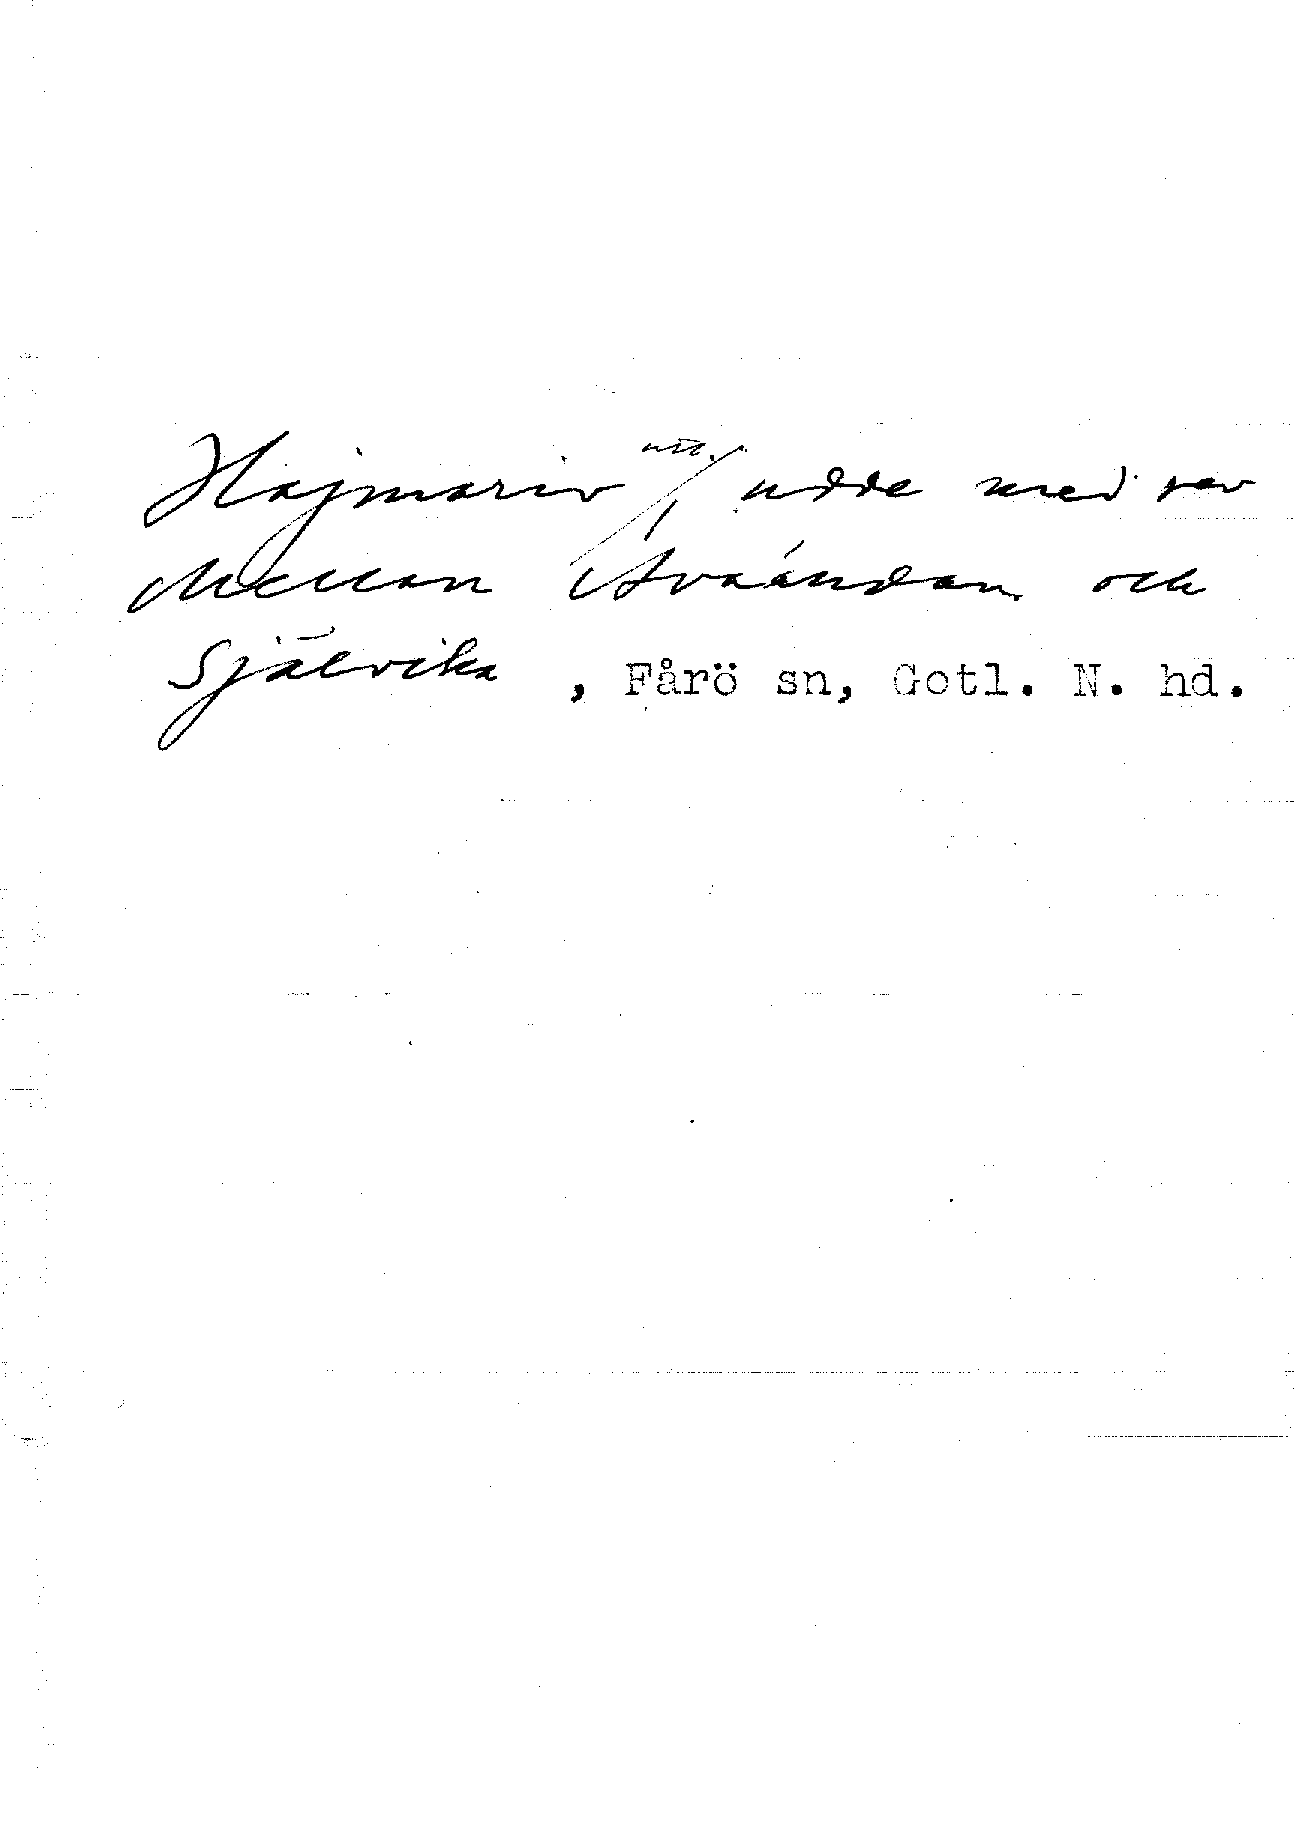 Hajmariv ntr., udde med rev
Mellan Avaándan och
Självika, Fårö sn, Gotl. N. hd.